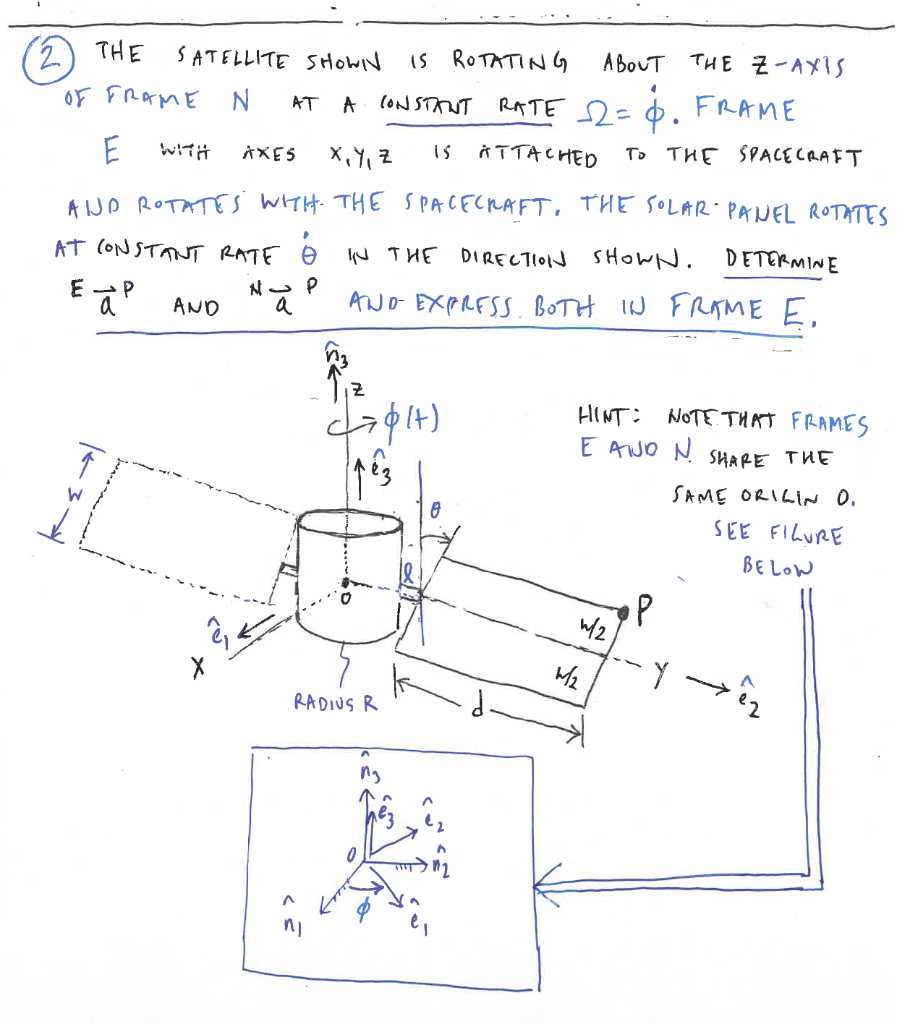 2 THE SATELLITE SHOWN IS ROTATING ABOUT THE Z-AXIS
OF FRAME N AT A CONSTANT RATE Ω = φ̇. FRAME
E WITH AXES X,Y,Z IS ATTACHED TO THE SPACECRAFT
AND ROTATES WITH THE SPACECRAFT. THE SOLAR PANEL ROTATES
AT CONSTANT RATE θ̇ IN THE DIRECTION SHOWN. DETERMINE
ᴱa⃗ᴾ AND ᴺa⃗ᴾ AND EXPRESS BOTH IN FRAME E.
n̂3
Z
φ(t)
ê3
HINT: NOTE THAT FRAMES
E AND N SHARE THE
SAME ORIGIN O.
SEE FIGURE
BELOW
W
θ
l
O
P
W/2
W/2
ê1
X
Y
ê2
RADIUS R
d
n̂3
ê3
ê2
O
n̂2
n̂1
φ
ê1